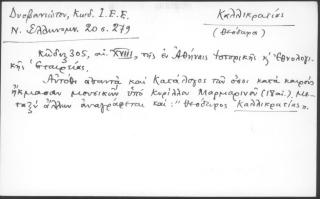 Δυοβουνιώτου, Κωδ. Ι.Ε.Ε.
Καλλικρατίας
Ν. Ελληνομν. 20 σ. 279
(Θεόδωρος)
Κῶδιξ 305, αἰ. XVIII, τῆς ἐν Ἀθήναις Ἱστορικῆς κ' Ἐθνολογι-
κῆς Ἑταιρείας.
Αὐτόθι ἀπαντᾷ καὶ Κατάλογος τῶν ὅσοι κατὰ καιροὺς
ἤκμασαν μουσικῶν ὑπὸ Κυρίλλου Μαρμαρινοῦ (18 αἰ.). Με-
ταξὺ ἄλλων ἀναγράφεται καὶ: "Θεόδωρος Καλλικρατίας".